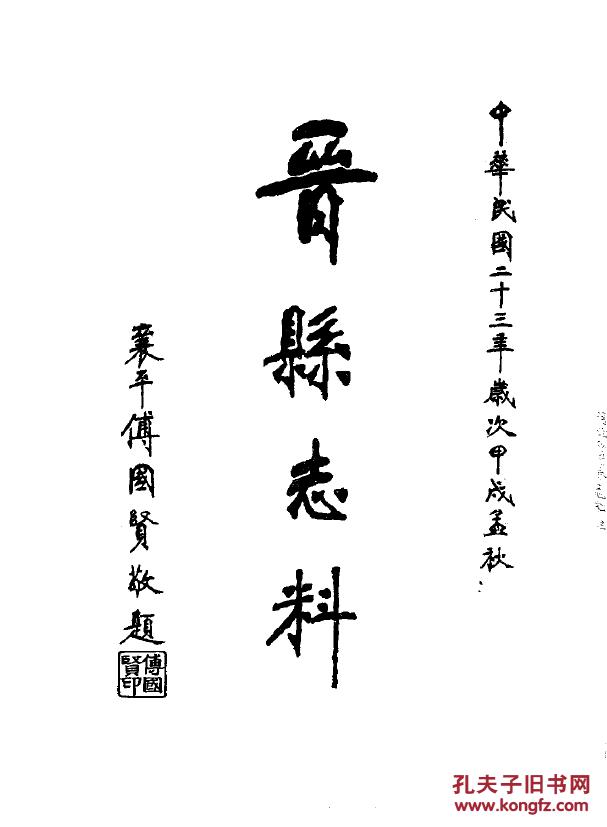 中華民國二十三年歲次甲戌孟秋
晉縣志料
襄平傅國賢敬題
傅國賢印
孔夫子旧书网
www.kongfz.com